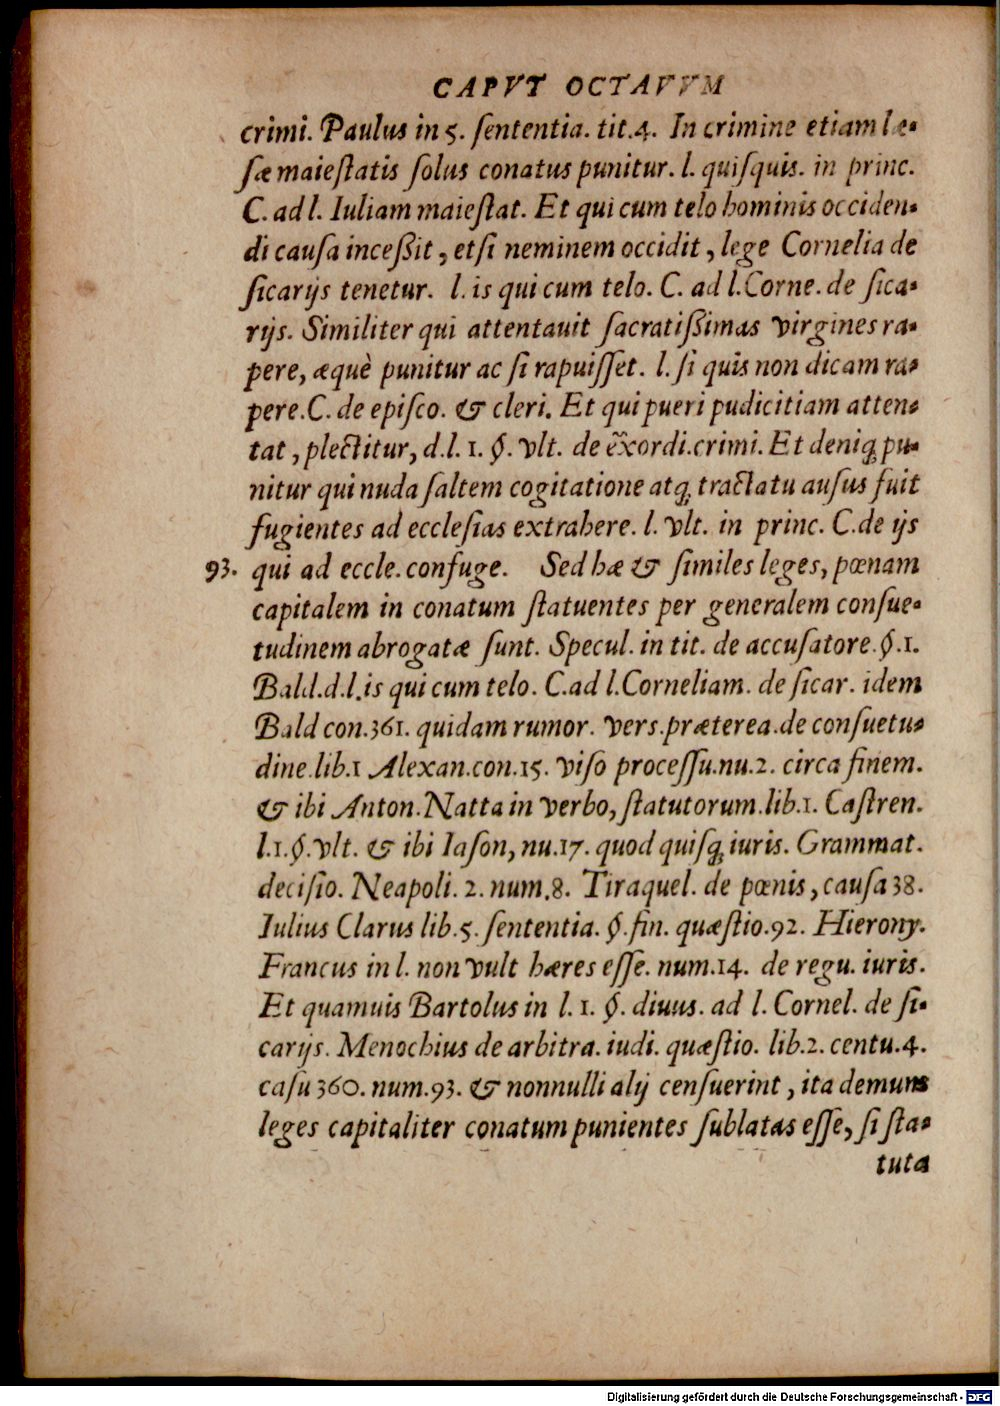 CAPVT OCTAVVM
crimi. Paulus in 5. ſententia. tit.4. In crimine etiam læ-
ſæ maieſtatis ſolus conatus punitur. l. quiſquis. in princ.
C. ad l. Iuliam maieſtat. Et qui cum telo hominis occiden-
di cauſa inceßit, etſi neminem occidit, lege Cornelia de
ſicarijs tenetur. l. is qui cum telo. C. ad l.Corne. de ſica-
rijs. Similiter qui attentauit ſacratißimas virgines ra-
pere, æquè punitur ac ſi rapuiſſet. l. ſi quis non dicam ra-
pere.C. de epiſco. & cleri. Et qui pueri pudicitiam atten-
tat, plectitur, d.l. 1. §. vlt. de ex̃ordi.crimi. Et deniq; pu-
nitur qui nuda ſaltem cogitatione atq; tractatu auſus fuit
fugientes ad eccleſias extrahere. l. vlt. in princ. C.de ijs
93. qui ad eccle. confuge. Sed hæ & ſimiles leges, pœnam
capitalem in conatum ſtatuentes per generalem conſue-
tudinem abrogatæ ſunt. Specul. in tit. de accuſatore.§.1.
Bald.d.l.is qui cum telo. C.ad l.Corneliam. de ſicar. idem
Bald con.361. quidam rumor. verſ.præterea.de conſuetu-
dine.lib.1 Alexan.con.15. viſo proceſſu.nu.2. circa finem.
& ibi Anton.Natta in verbo, ſtatutorum.lib.1. Caſtren.
l.1.§.vlt. & ibi Iaſon, nu.17. quod quiſq; iuris. Grammat.
deciſio. Neapoli. 2. num.8. Tiraquel. de pœnis, cauſa 38.
Iulius Clarus lib.5. ſententia. §.fin. quæſtio.92. Hierony.
Francus in l. non vult hæres eſſe. num.14. de regu. iuris.
Et quamuis Bartolus in l. 1. §. diuus. ad l. Cornel. de ſi-
carijs. Menochius de arbitra. iudi. quæſtio. lib.2. centu.4.
caſu 360. num.93. & nonnulli alij cenſuerint, ita demum
leges capitaliter conatum punientes ſublatas eſſe, ſi ſta-
tuta
Digitalisierung gefördert durch die Deutsche Forschungsgemeinschaft - DFG